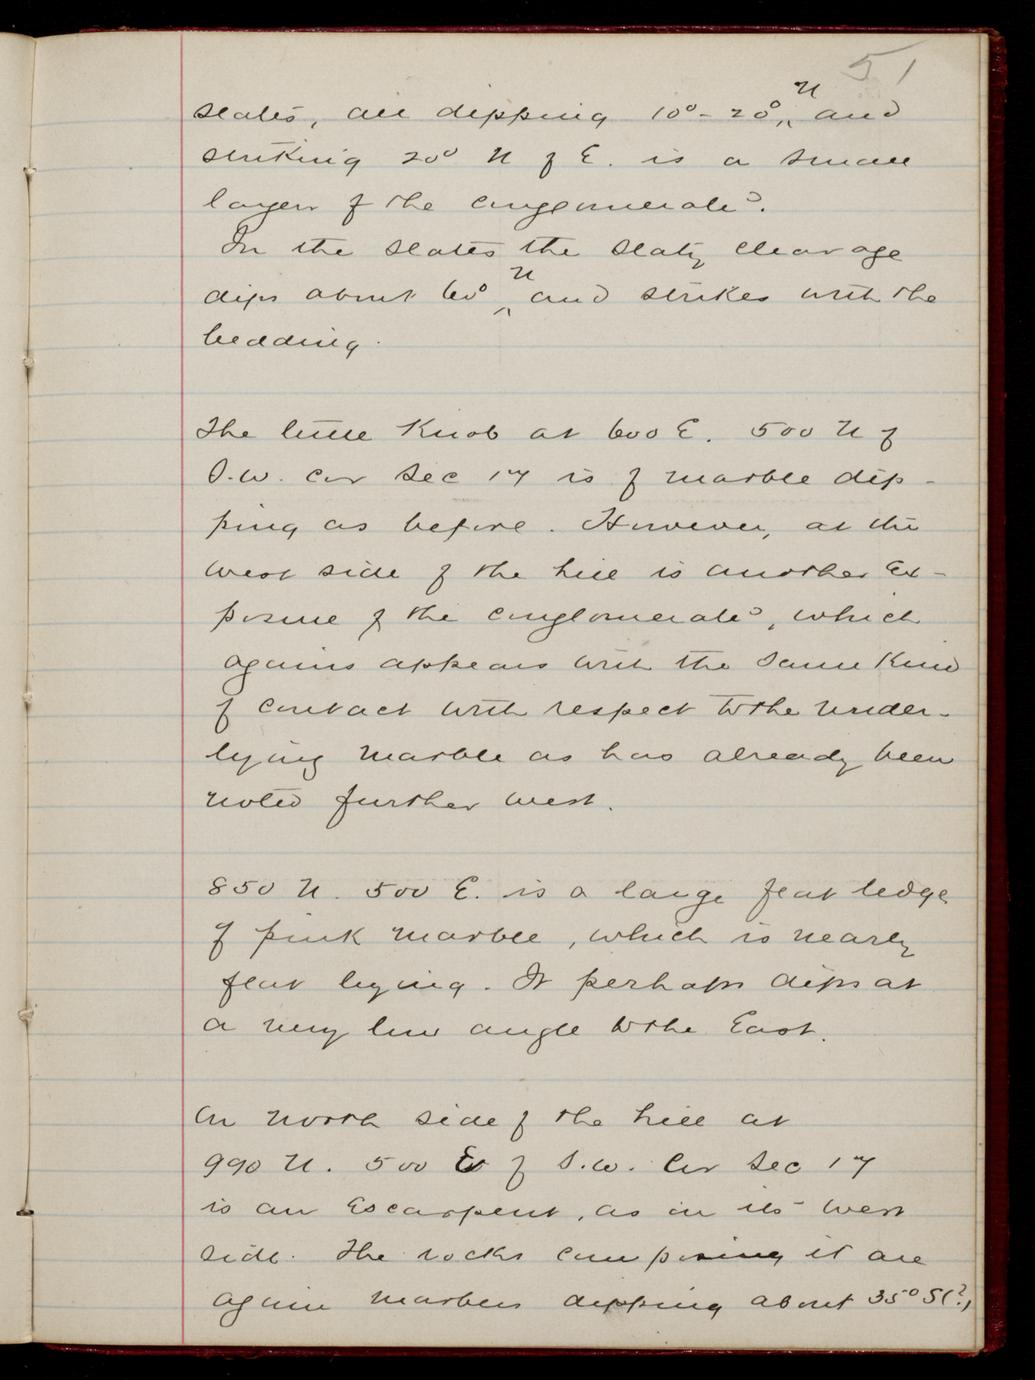 51
slates, all dipping 10°-20°, N and
striking 20° N of E. is a small
layer of the conglomerate.
In the slates the slaty cleavage
dips about 60° N and strikes with the
bedding.
The little Knob at 600 E. 500 N of
S.W. cor Sec 17 is of marble dip-
ping as before. However, at the
west side of the hill is another Ex-
posure of the conglomerate, which
again appears with the same Kind
of contact with respect to the under-
lying marble as has already been
noted further west.
850 N. 500 E. is a large flat ledge
of pink marble, which is nearly
flat lying. It perhaps dips at
a very low angle to the East.
On north side of the hill at
990 N. 500 E of S.W. Cor Sec 17
is an Escarpent, as in its west
side. The rocks composing it are
again marbles dipping about 35° S(?)